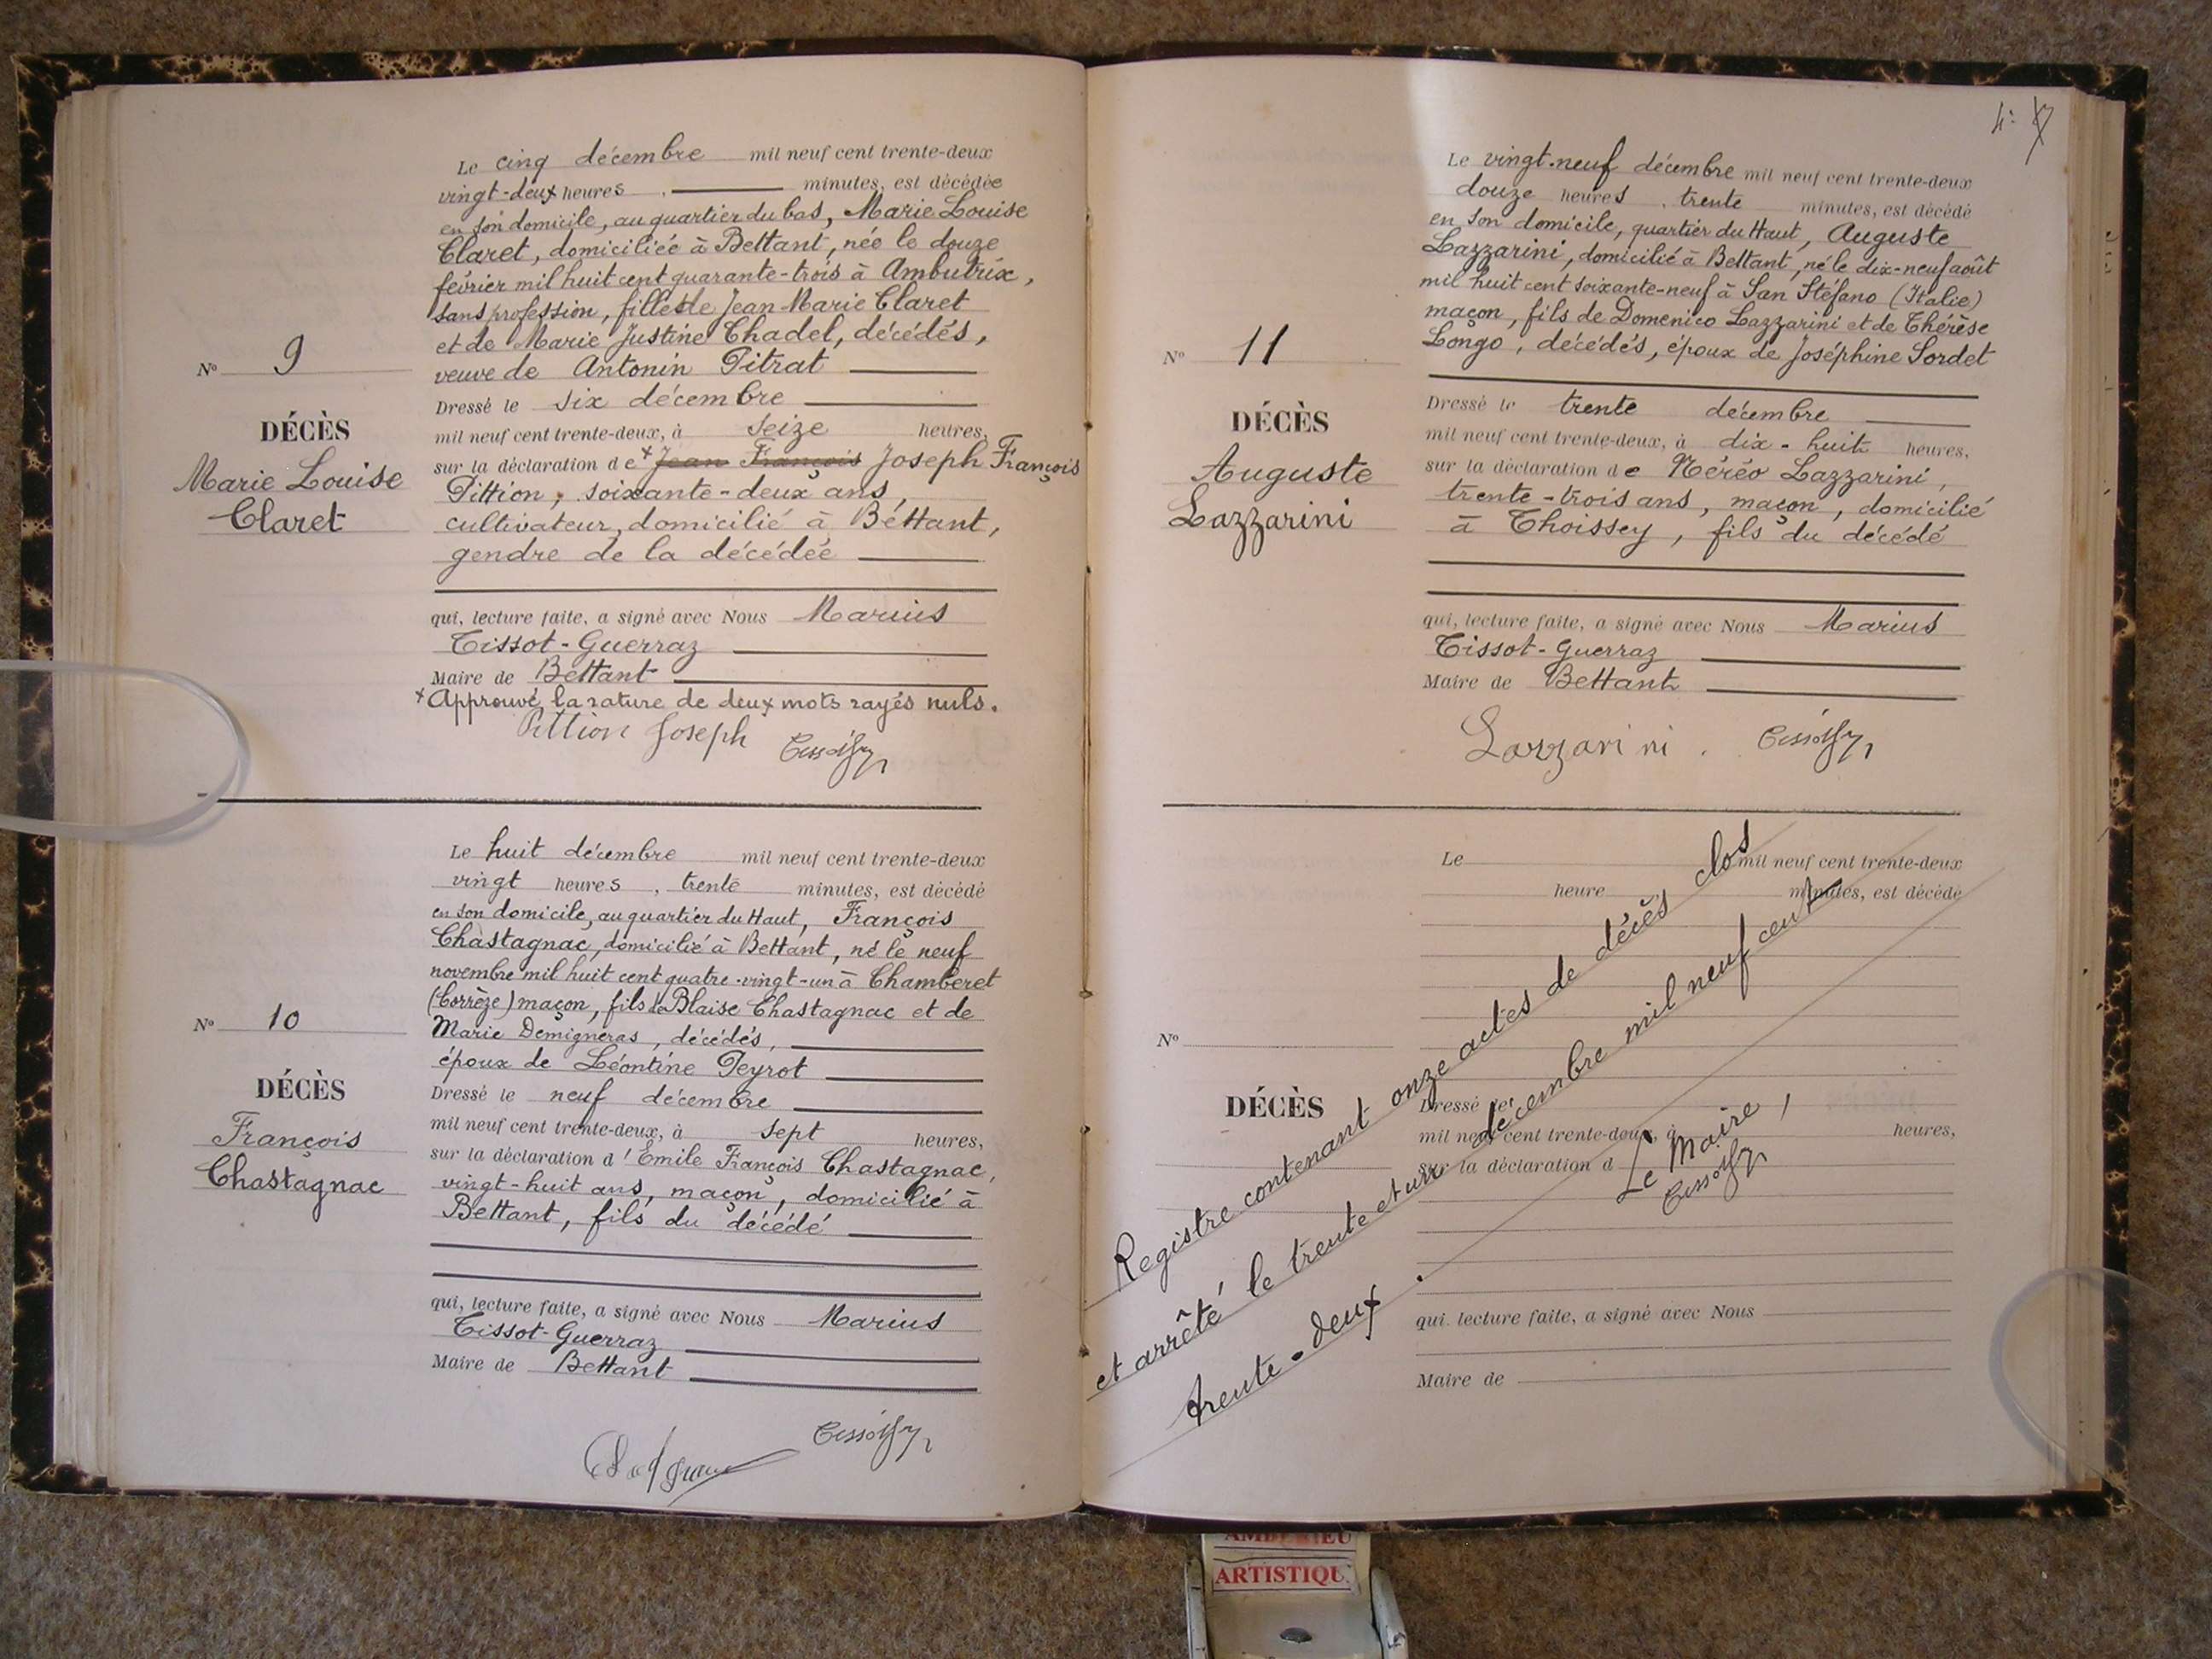 Le cinq décembre mil neuf cent trente-deux
vingt-deux heures, minutes, est décédée
en son domicile, au quartier du bas, Marie Louise
Claret, domiciliée à Bettant, née le douze
février mil huit cent quarante-trois à Ambutrix,
sans profession, fille de Jean Marie Claret
et de Marie Justine Chadel, décédés,
veuve de Antonin Pitrat
Nº 9
DÉCÈS
Marie Louise
Claret
Dressé le six décembre
mil neuf cent trente-deux, à seize heures,
sur la déclaration de + Jean François Joseph François
Pittion, soixante-deux ans,
cultivateur, domicilié à Béttant,
gendre de la décédée
qui, lecture faite, a signé avec Nous Marius
Tissot-Guerraz
Maire de Bettant
+ Approuvé la rature de deux mots rayés nuls.
Pittion Joseph
Le huit décembre mil neuf cent trente-deux
vingt heures, trente minutes, est décédé
en son domicile, au quartier du Haut, François
Chastagnac, domicilié à Bettant, né le neuf
novembre mil huit cent quatre-vingt-un à Chamberet
(Corrèze) maçon, fils de Blaise Chastagnac et de
Marie Demigneras, décédés,
époux de Léontine Peyrot
Nº 10
DÉCÈS
François
Chastagnac
Dressé le neuf décembre
mil neuf cent trente-deux, à sept heures,
sur la déclaration d'Emile François Chastagnac,
vingt-huit ans, maçon, domicilié à
Bettant, fils du décédé
qui, lecture faite, a signé avec Nous Marius
Tissot-Guerraz
Maire de Bettant
Le vingt-neuf décembre mil neuf cent trente-deux
douze heures, trente minutes, est décédé
en son domicile, quartier du Haut, Auguste
Lazzarini, domicilié à Bettant, né le dix-neuf août
mil huit cent soixante-neuf à San Stéfano (Italie)
maçon, fils de Domenico Lazzarini et de Thérèse
Longo, décédés, époux de Joséphine Sordet
Nº 11
DÉCÈS
Auguste
Lazzarini
Dressé le trente décembre
mil neuf cent trente-deux, à dix-huit heures,
sur la déclaration de Néréo Lazzarini,
trente-trois ans, maçon, domicilié
à Thoissey, fils du décédé
qui, lecture faite, a signé avec Nous Marius
Tissot-Guerraz
Maire de Bettant
Lazzarini.
Le mil neuf cent trente-deux
heure minutes, est décédé
Nº
DÉCÈS
Dressé le
mil neuf cent trente-deux, à heures,
sur la déclaration d
qui, lecture faite, a signé avec Nous
Maire de
Registre contenant onze actes de décès clos
et arrêté le trente et un décembre mil neuf cent
trente-deux.
Le Maire,
ARTISTIQU